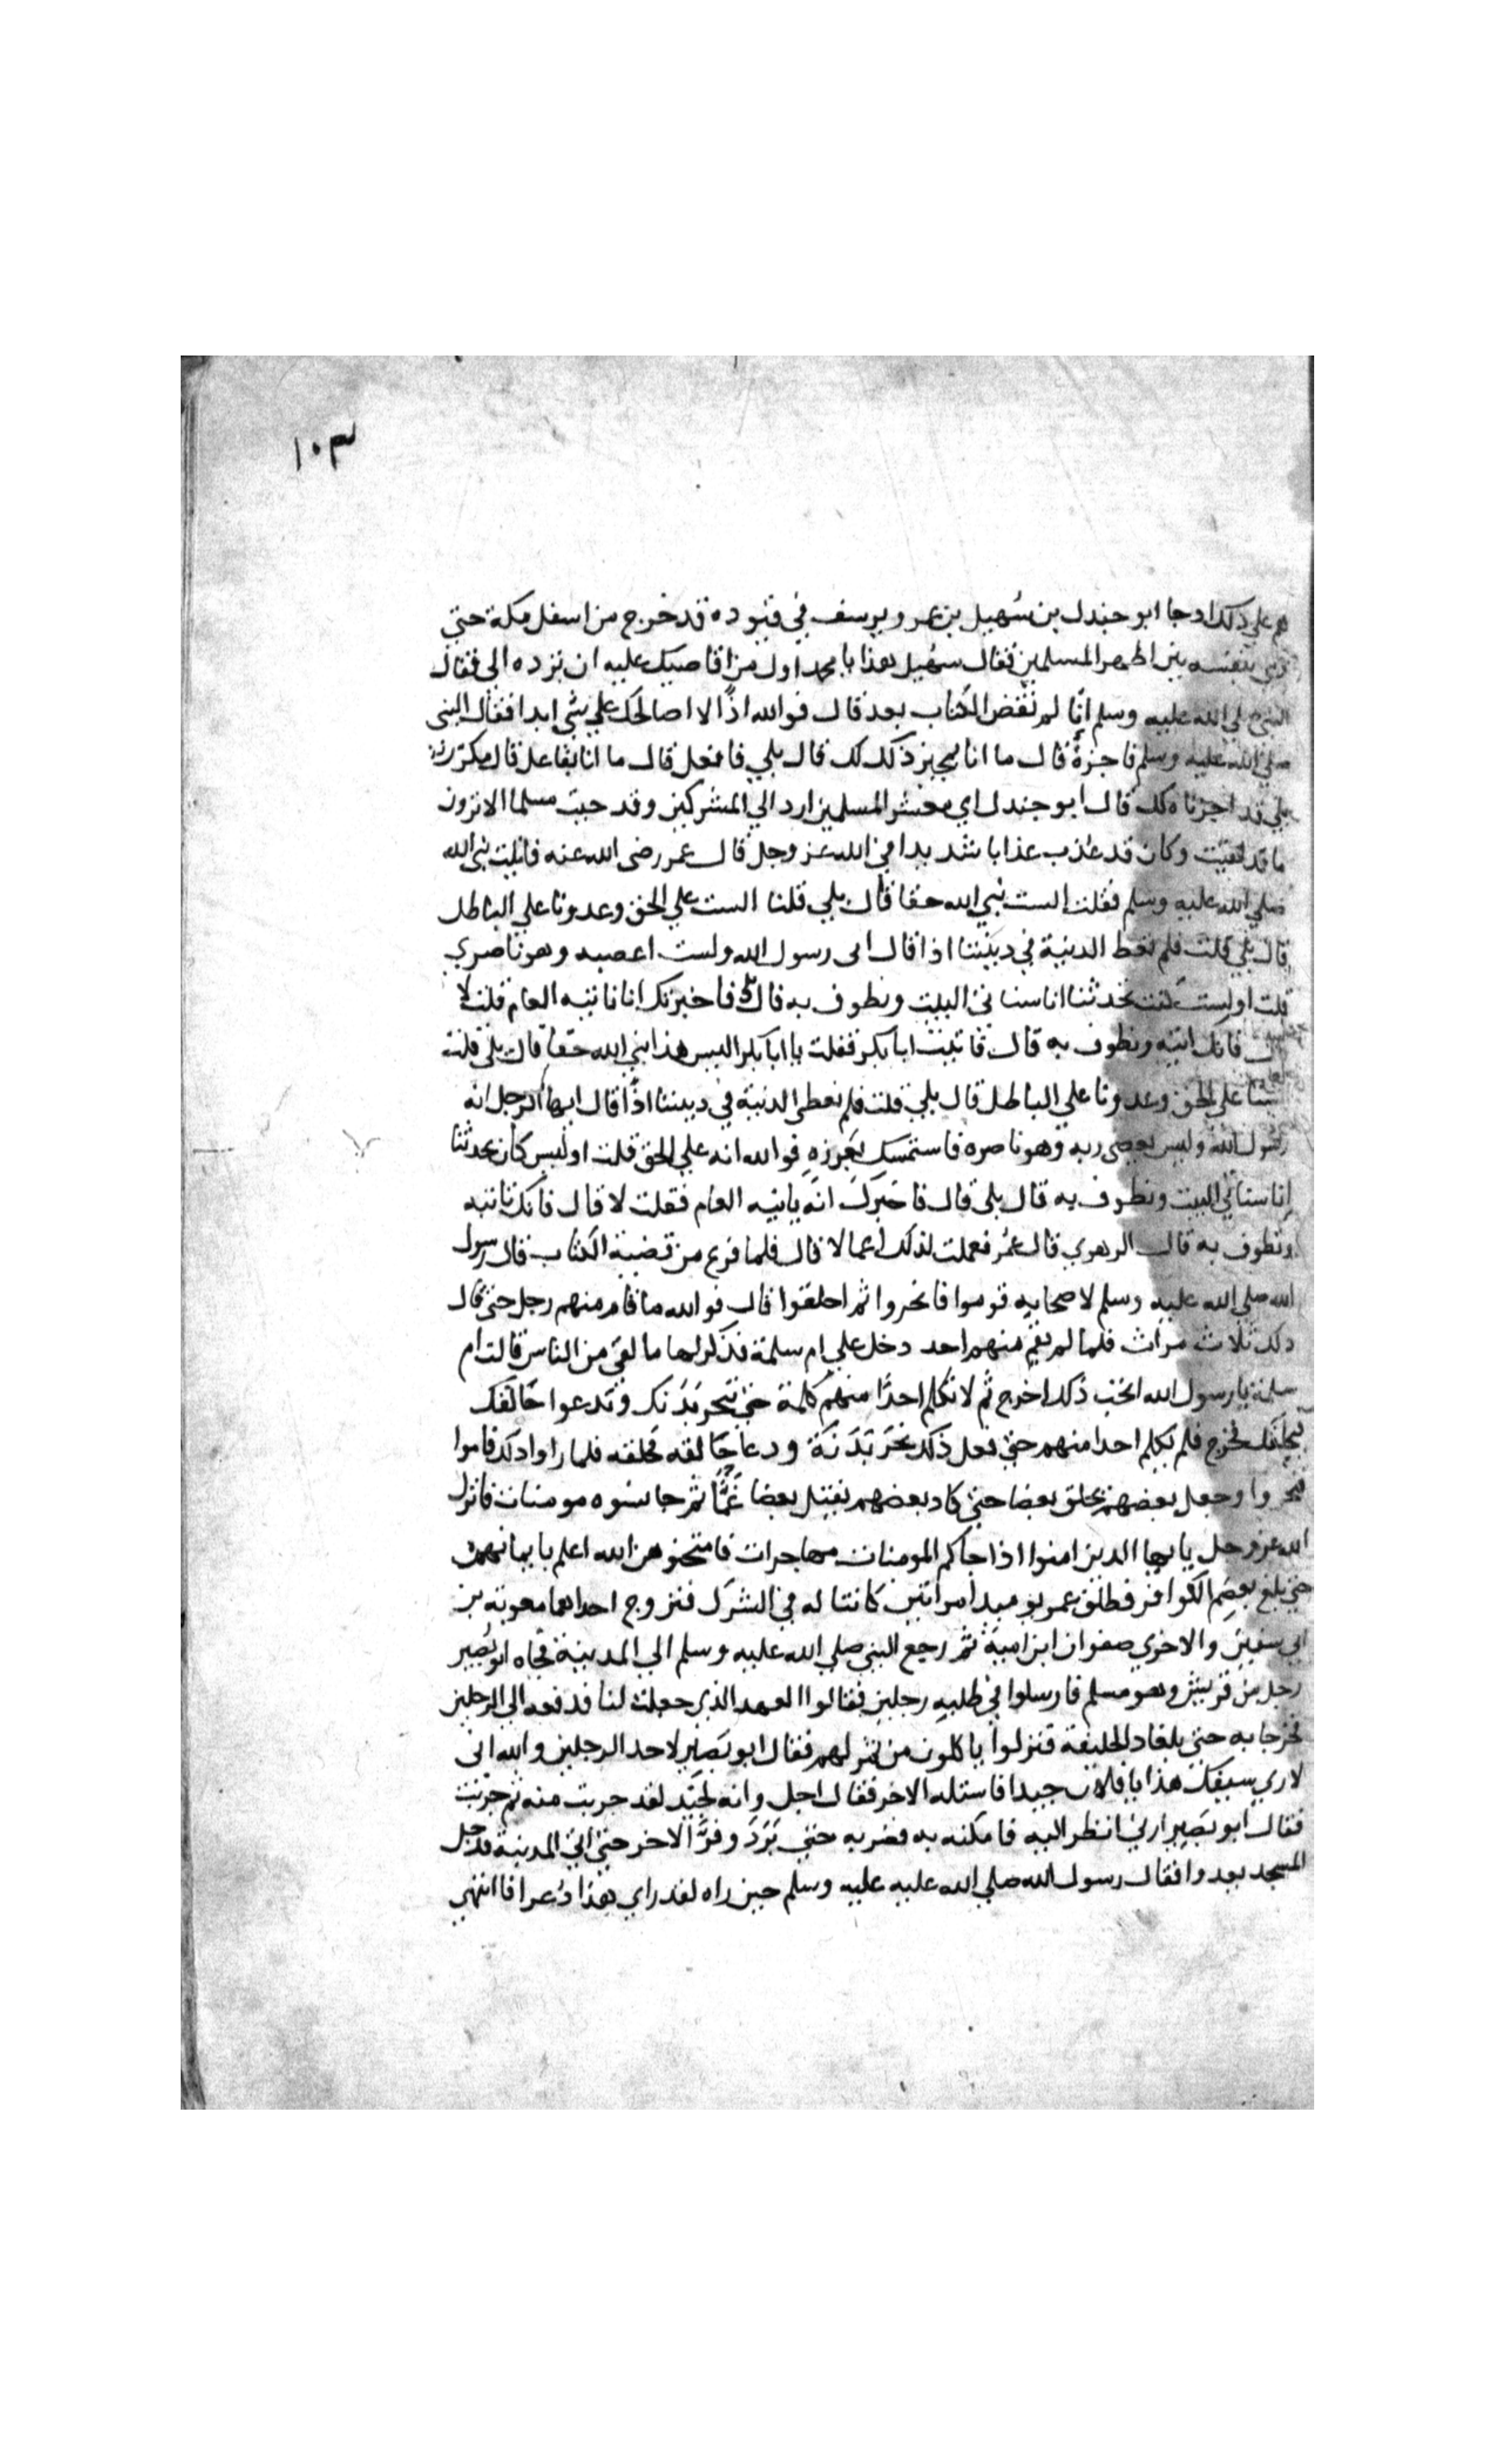 ١٠٣
هم علي ذلك اد جا ابو جندل بن سُهيل بن عمرو يرسف في قيوده قد خرج من اسفل مكة حتي
رمي بنفسه بين اظهر المسلمين فقال سهيل هذا يا محمد اول من اقاضيك عليه ان ترده الي فقال
النبي صلي الله عليه وسلم انّا لم نقض الكتاب بعد قال فوالله اذًا لا اصالحك علي شي ابدا فقال النبي
صلي الله عليه وسلم فاجزهُ قال ما انا مجيز ذلك لك قال بلي فافعل قال ما انا بفاعل قال مكرز
بلي قد اجزناه لك قال ابو جندل اي معشر المسلمين ارد الي المشركين وقد جيت مسلما الا ترون
ما قد لقيت وكان قد عُذب عذابا شديدا في الله عز وجل قال عمر رضى الله عنه فاتيت نبى الله
صلي الله عليه وسلم فقلت الست نبي الله حقا قال بلي قلنا الست علي الحق وعدونا علي الباطل
قال بلي قلت فلم نعط الدنية في ديننا اذا قال انى رسول الله ولست اعصيه وهو ناصري
قلت اوليست كنت تحدثنا انا سناتي البيت ونطوف به قال بلى فاخبرتك انا ناتيه العام قلت لا
قال فانك اتيه ونطوف به قال فاتيت ابا بكر فقلت يا ابا بكر اليس هذا نبي الله حقا قال بلي قلت
السنا علي الحق وعدونا علي الباطل قال بلي قلت فلم نعطي الدنية في ديننا اذًا قال ايها الرجل انه
رسول الله وليس يعصى ربه وهو ناصره فاستمسك بغرزه فوالله انه علي الحق قلت اوليس كان يحدثنا
انا سناتي البيت ونطوف به قال بلى قال فاخبرك انه ياتيه العام فقلت لا قال فانك تاتيه
ونطوف به قال الزهري قال عمر فعملت لذلك اعمالا قال فلما فرغ من قضية الكتاب قال رسول
الله صلي الله عليه وسلم لاصحابه قوموا فانحروا ثم احلقوا قال فوالله ما قام منهم رجل حتي قال
ذلك ثلاث مرات فلما لم يقم منهم احد دخل علي ام سلمة فذكر لها ما لقى من الناس قالت ام
سلمة يا رسول الله اتحب ذلك اخرج ثم لا تكلم احدًا منهم كلمة حتي تنحر بَدَنك وتدعوا حالقك
فيحلقك فخرج فلم يكلم احدا منهم حتي فعل ذلك نحر بَدَنَة ودعا حالقه فحلقه فلما راوا ذلك قاموا
فنحروا وجعل بعضهم يحلق بعضا حتي كاد بعضهم يقتل بعضا غَمًّا ثم جا نسوه مومنات فانزل
الله عز وجل يا ايها الذين امنوا اذا جاكم المومنات مهاجرات فامتحنوهن الله اعلم بايمانهن
حتي بلغ بعصم الكوافر فطلق عمر يوميد امراتين كانتا له في الشرك فتزوج احداهما معوية بن
ابى سفين والاخري صفوان ابن امية ثم رجع النبي صلي الله عليه وسلم الي المدينة فجاه ابو بَصير
رجل من قريش وهو مسلم فارسلوا في طلبه رجلين فقالوا العهد الذي جعلت لنا فدفعه الى الرجلين
فخرجا به حتي بلغا ذا الحليفة فنزلوا ياكلون من تمر لهم فقال ابو بَصير لاحد الرجلين والله انى
لاري سيفك هذا يا فلان جيدا فاستله الاخر فقال اجل وانه لجيّد لقد جربت منه ثم جربت
فقال ابو بَصير ارني انظر اليه فامكنه به فضربه حتي بَرَدَ وفرَّ الاخر حتي اتي المدينة فدخل
المسجد يعدوا فقال رسول الله صلي الله عليه عليه وسلم حين راه لقد راي هذا ذُعرا فا انتهي